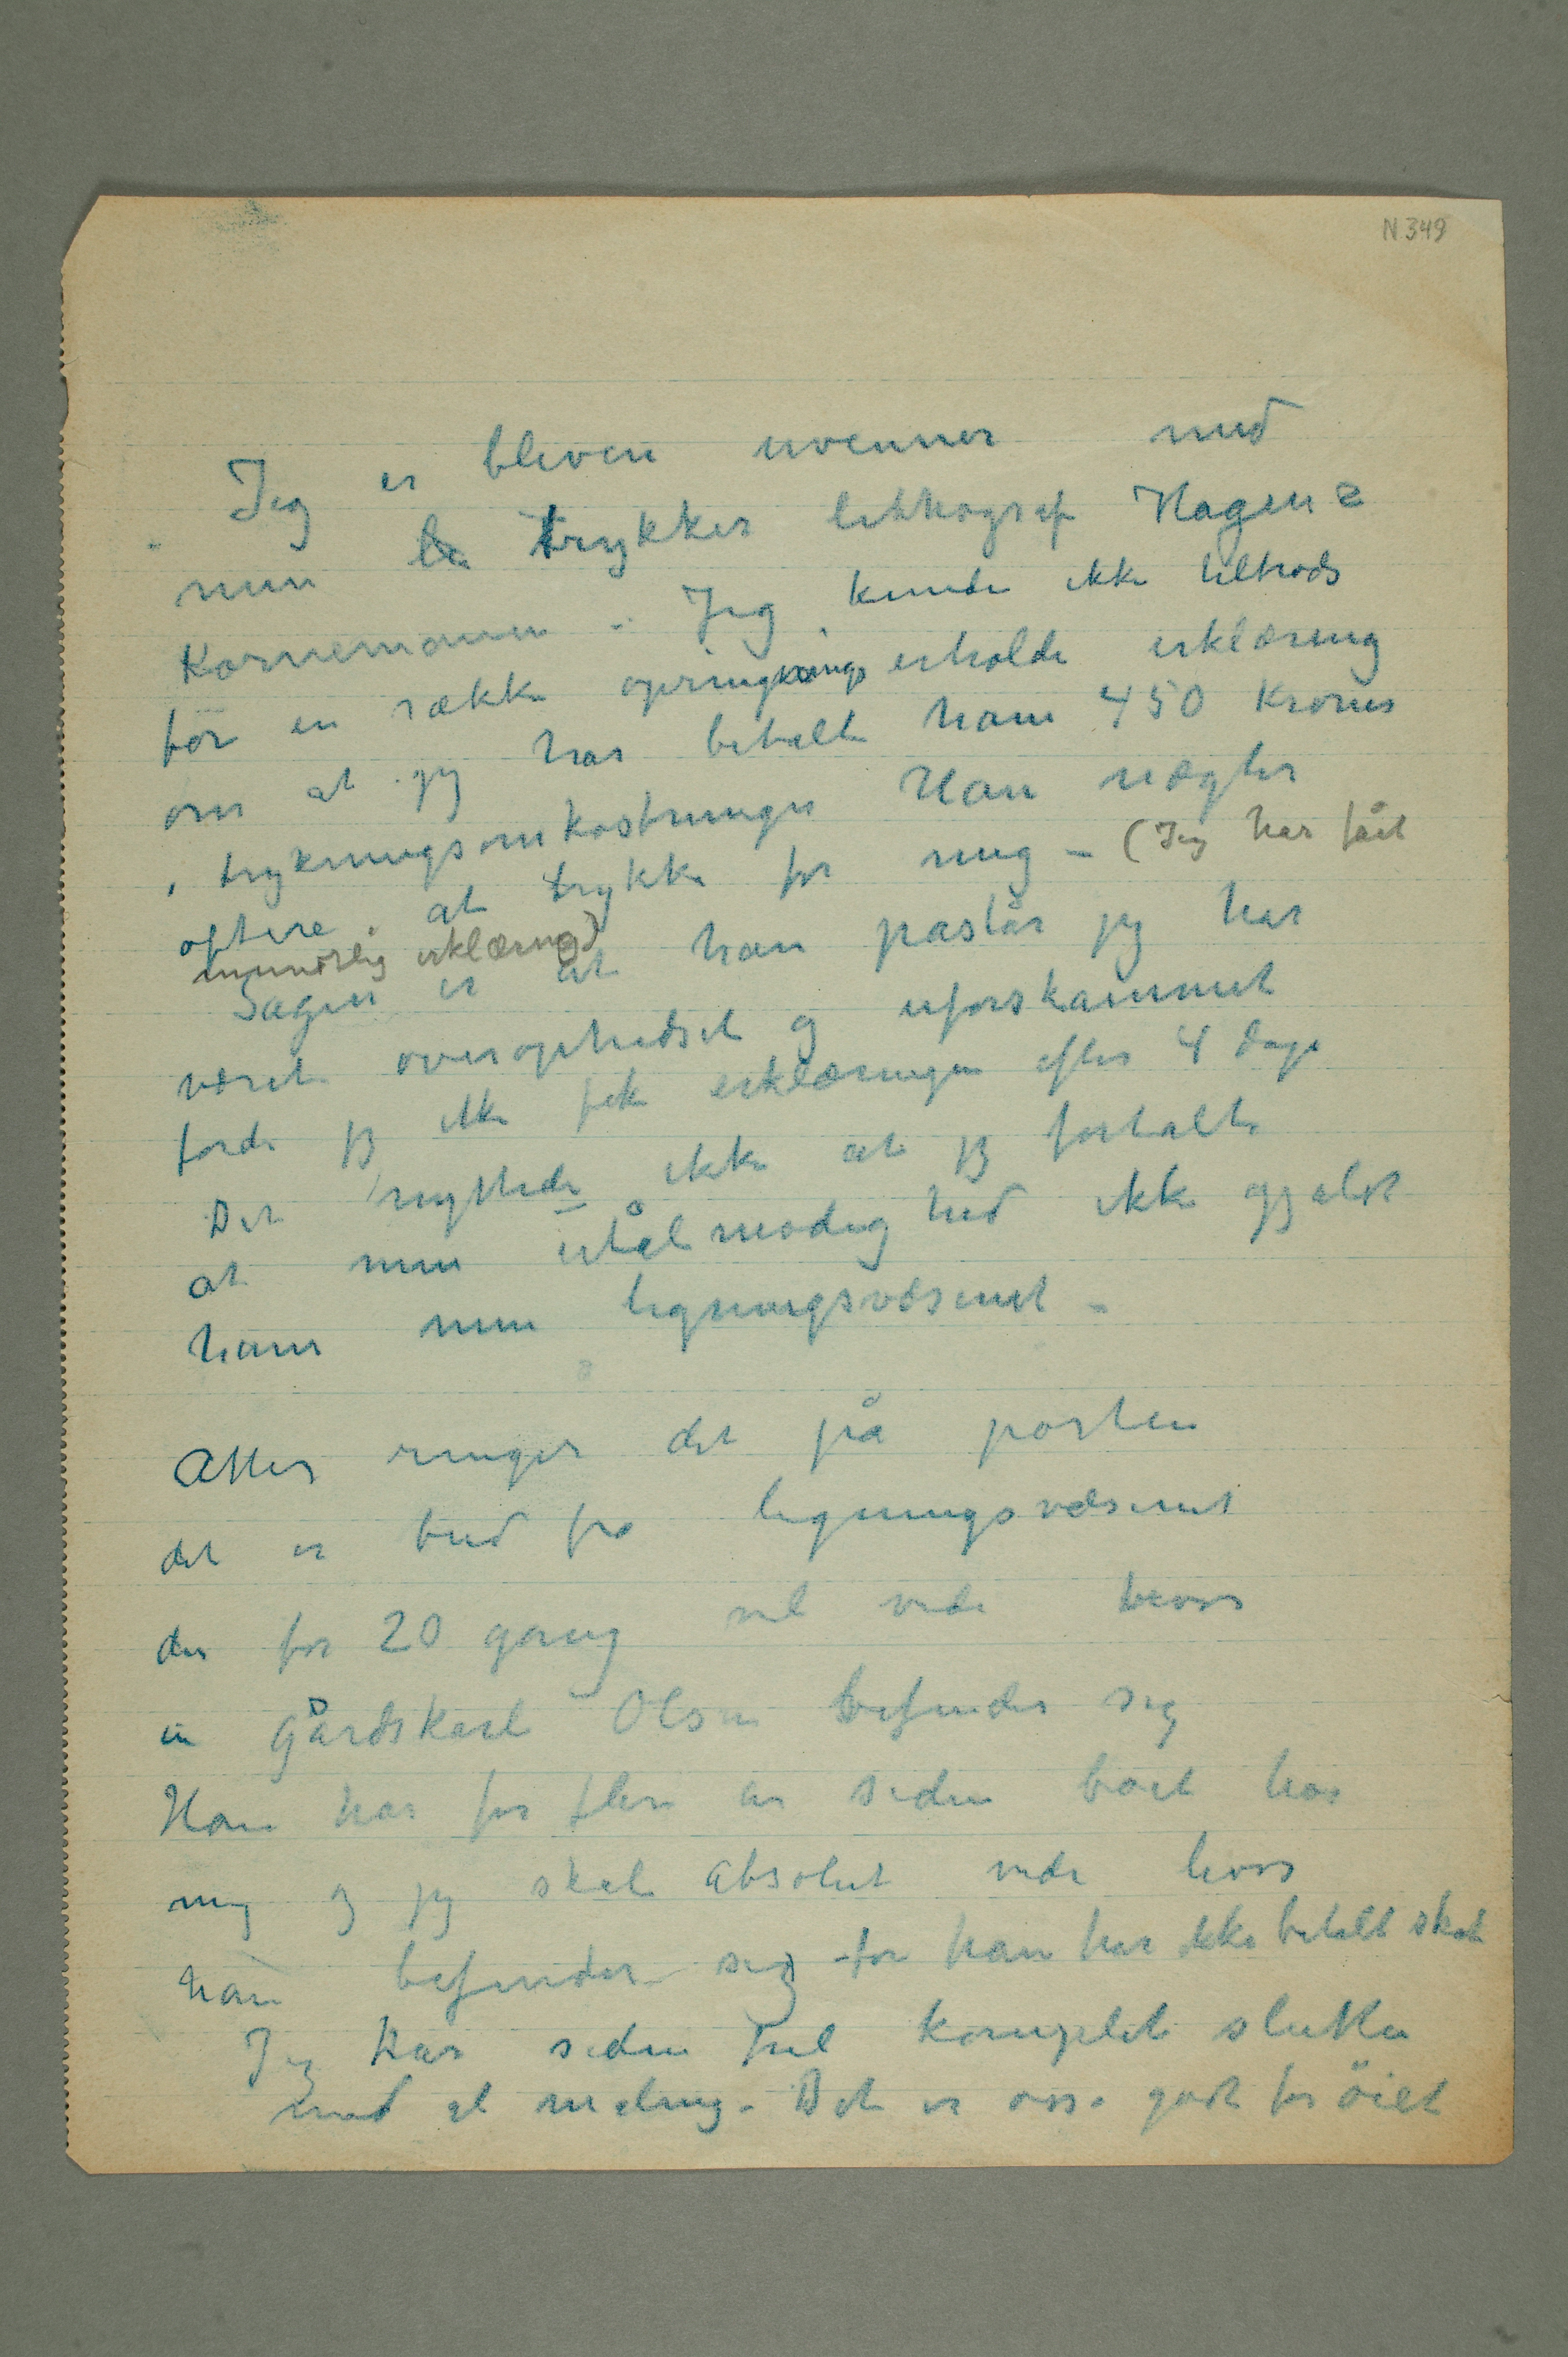 N 349
Jeg er bleven uvenner med
min trykker lithograf Hagen &
Kornemann – Jeg kunde ikke tiltrods
for en række opringnings erholde erklæring
om at jeg har betalt ham 450 Kroner
i trykningsomkostninger Han nægter
oftere at trykke for mig – (Jeg har fåt
mundtlig erklæring)
Sagen er at han påstår jeg har
været overophidset og uforskammet
fordi jeg ikke fik erklæringen efter 4 dage
Det nyttede ikke at jeg fortalte
at min utålmodighed ikke gjaldt
ham men ligningsvæsenet –
Atter ringer det på porten
det er bud fra ligningsvæsenet
der for 20 gang vil vide hvor
en Gårdskarl Olsen befinder sig
Han har for flere år siden boet hos
mig og jeg skal absolut vide hvor
han befinder sig – for han har ikke betalt skat
Jeg har siden Jul komplet sluttet
med al maling. Det er osså godt for öiet